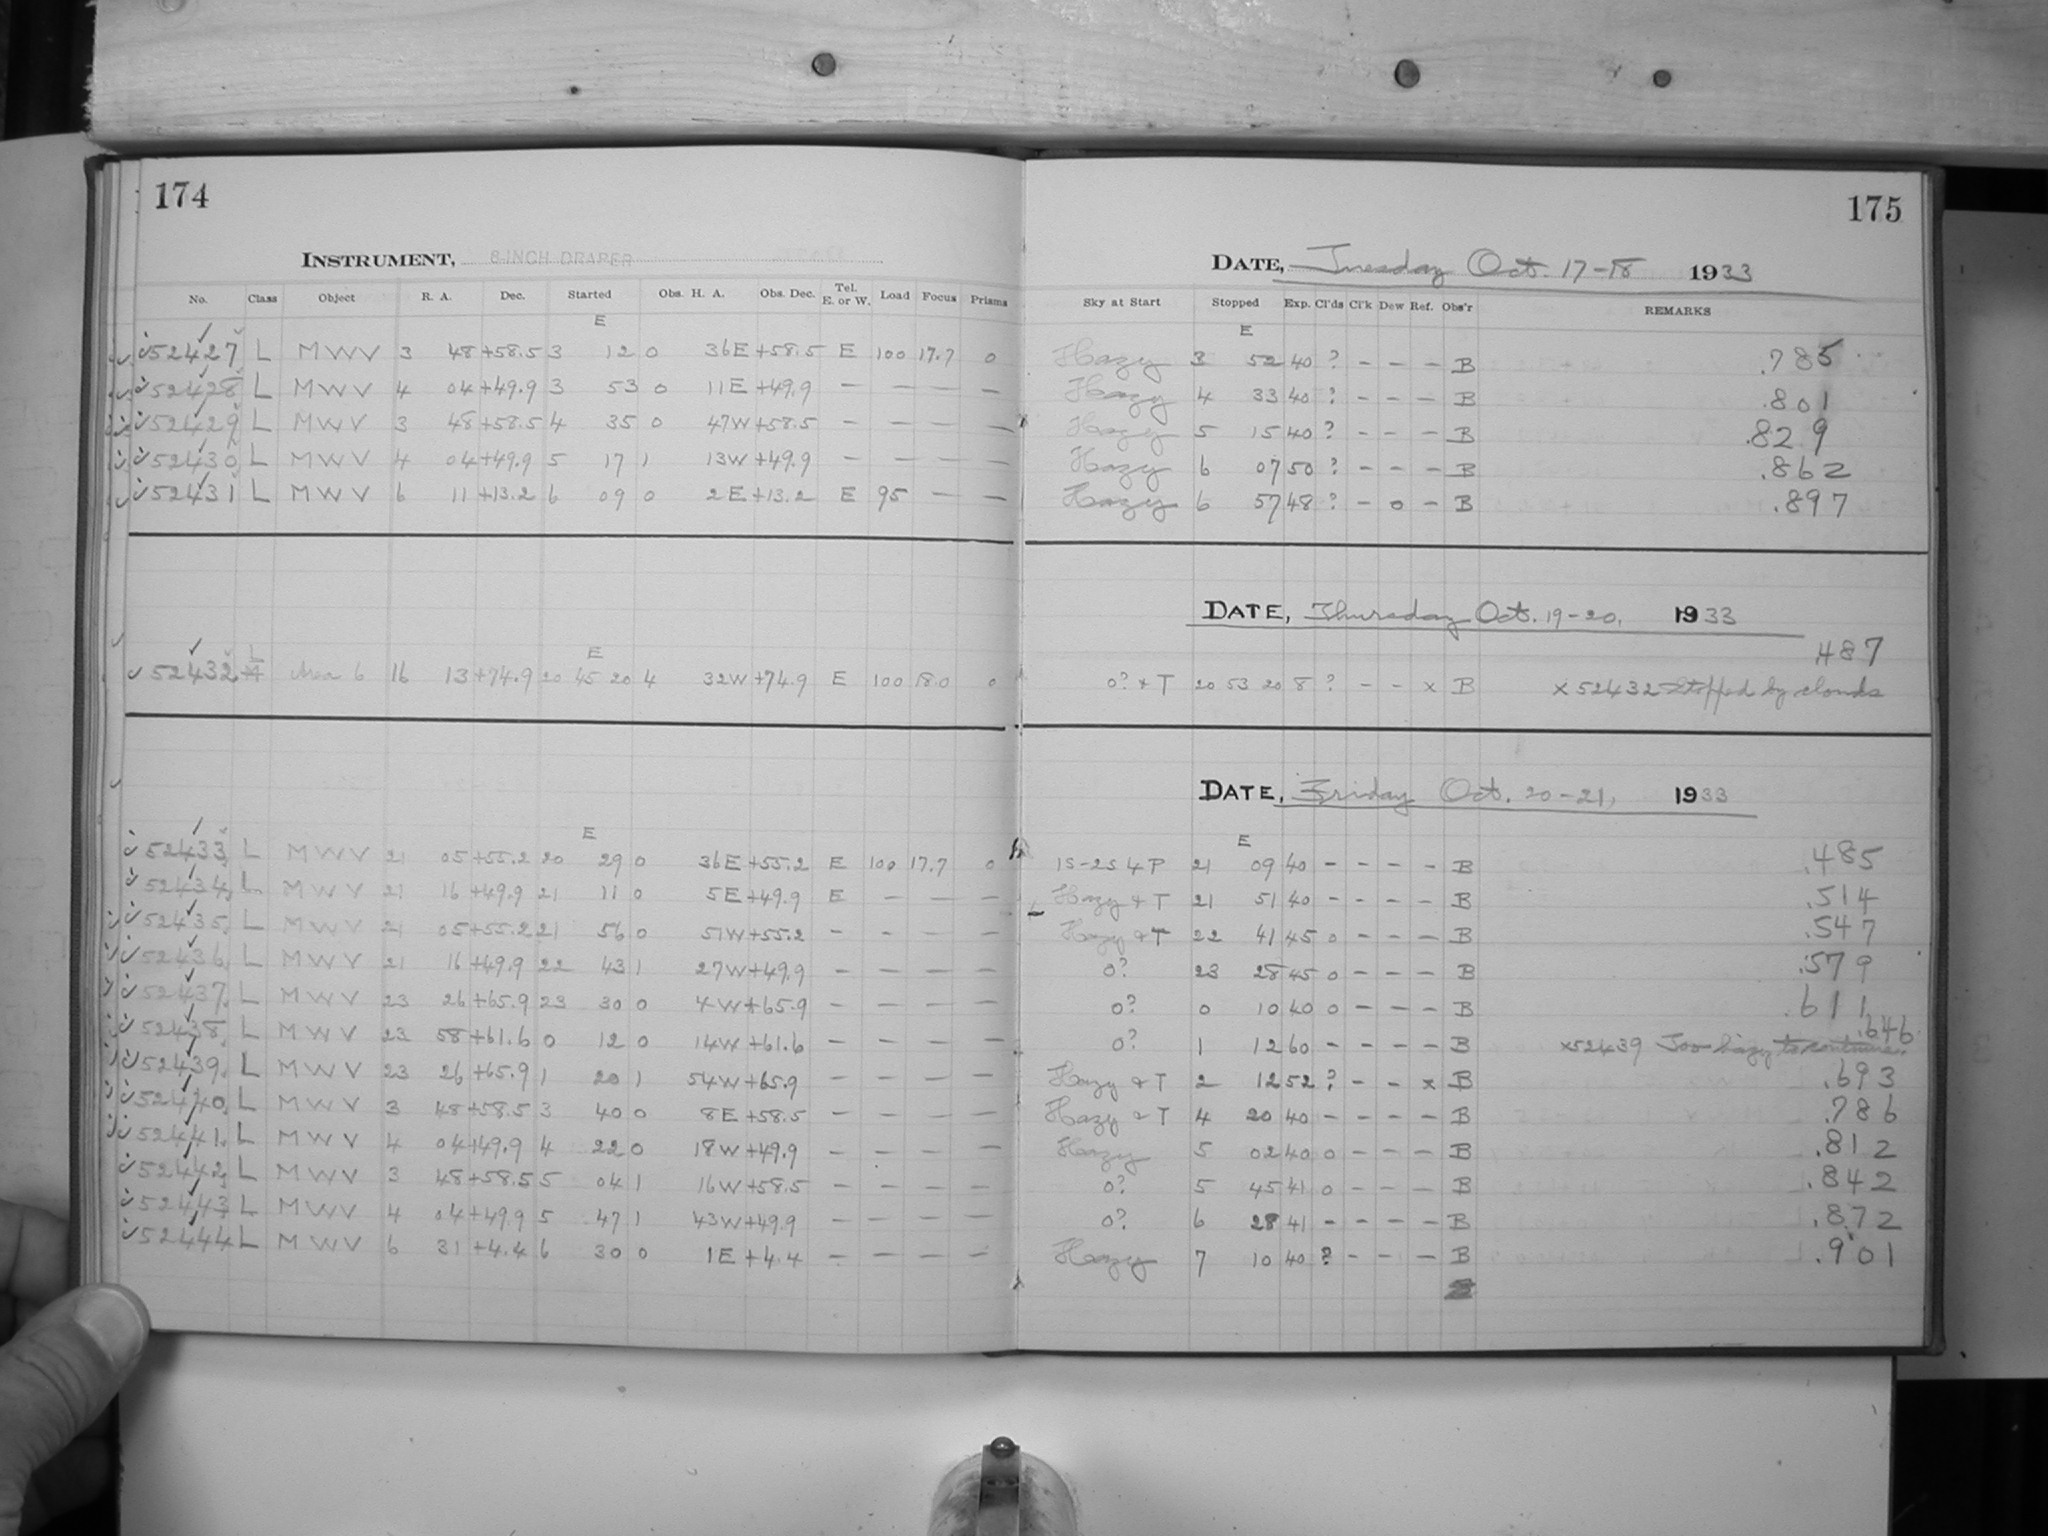 174
INSTRUMENT, 8 INCH DRAPER
No. Class Object R. A. Dec. Started Obs. H. A. Obs. Dec. Tel. E. or W. Load Focus Prisms
E
52427 L MWV 3 48 +58.5 3 12 0 36E +58.5 E 100 17.7 0
52428 L MWV 4 04 +49.9 3 53 0 11E +49.9 — — — —
52429 L MWV 3 48 +58.5 4 35 0 47W +58.5 — — — —
52430 L MWV 4 04 +49.9 5 17 1 13W +49.9 — — — —
52431 L MWV 6 11 +13.2 6 09 0 2E +13.2 E 95 — —
E
52432 L Area 6 16 13 +74.9 20 45 20 4 32W +74.9 E 100 18.0 0
E
52433 L MWV 21 05 +55.2 20 29 0 36E +55.2 E 100 17.7 0
52434 L MWV 21 16 +49.9 21 11 0 5E +49.9 E — — —
52435 L MWV 21 05 +55.2 21 56 0 51W +55.2 — — — —
52436 L MWV 21 16 +49.9 22 43 1 27W +49.9 — — — —
52437 L MWV 23 26 +65.9 23 30 0 4W +65.9 — — — —
52438 L MWV 23 58 +61.6 0 12 0 14W +61.6 — — — —
52439 L MWV 23 26 +65.9 1 20 1 54W +65.9 — — — —
52440 L MWV 3 48 +58.5 3 40 0 8E +58.5 — — — —
52441 L MWV 4 04 +49.9 4 22 0 18W +49.9 — — — —
52442 L MWV 3 48 +58.5 5 04 1 16W +58.5 — — — —
52443 L MWV 4 04 +49.9 5 47 1 43W +49.9 — — — —
52444 L MWV 6 31 +4.4 6 30 0 1E +4.4 — — — —
175
DATE, Tuesday Oct. 17-18 1933
Sky at Start Stopped Exp. Cl'ds Cl'k Dew Ref. Obs'r REMARKS
E
Hazy 3 52 40 ? - - - B .785
Hazy 4 33 40 ? - - - B .801
Hazy 5 15 40 ? - - - B .829
Hazy 6 07 50 ? - - - B .862
Hazy 6 57 48 ? - 0 - B .897
DATE, Thursday Oct. 19-20, 1933
.487
0? & T 20 53 20 8 ? - - x B x 52432 Stopped by clouds
DATE, Friday Oct. 20-21, 1933
E
1S-2S 4P 21 09 40 - - - - B .485
Hazy & T 21 51 40 - - - - B .514
Hazy & T 22 41 45 0 - - - B .547
0? 23 28 45 0 - - - B .579
0? 0 10 40 0 - - - B .611
0? 1 12 60 - - - - B x52439 Too hazy to continue. .646
Hazy & T 2 12 52 ? - - x B .693
Hazy & T 4 20 40 - - - - B .786
Hazy 5 02 40 0 - - - B .812
0? 5 45 41 0 - - - B .842
0? 6 28 41 - - - - B .872
Hazy 7 10 40 ? - - - B .901